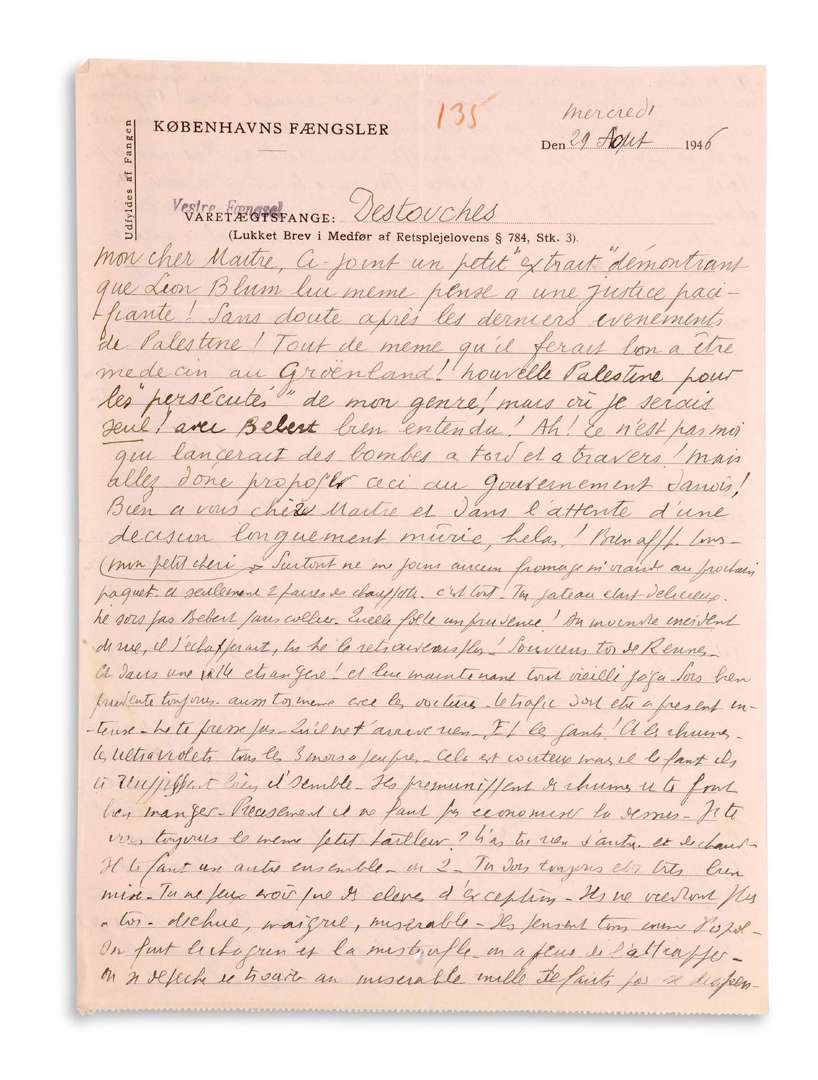 135
mercredi
KØBENHAVNS FÆNGSLER
Den 29 Aout 1946
Udfyldes af Fangen
Vestre Fængsel
VARETÆGTSFANGE: Destouches
(Lukket Brev i Medfør af Retsplejelovens § 784, Stk. 3).
Mon cher Maitre, Ci-joint un petit "extrait" démontrant
que Léon Blum lui meme pense a une justice paci-
fiante! Sans doute après les derniers evenements
de Palestine! Tout de meme qu'il ferait bon a être
medecin au Groënland! nouvelle Palestine pour
les "persécutés" de mon genre! mais où je serais
seul! avec Bebert bien entendu! Ah! Ce n'est pas moi
qui lancerait des bombes a tord et a travers! Mais
allez donc proposer ceci au Gouvernement Danois!
Bien a vous cher Maitre et dans l'attente d'une
decision longuement mûrie, helas! Bien aff.
mon petit cheri Surtout ne me joins aucun fromage ni viande au prochain
paquet. seulement 2 c'est tout. Ton gateau etait delicieux.
Ne sors pas Bebert sans collier. Quelle folle imprudence! Au moindre incident
de rue, il s'echapperait, tu ne le retrouverais plus! Souviens toi de Rennes-
et dans une ville etrangere! et lui maintenant tout vieilli gaga Sois bien
prudente toujours aussi toi meme avec les voitures. le trafic doit etre a present in-
tense. Ne te presse pas. Qu'il ne t'arrive rien. Et les gants! et les rhumes.
les ultraviolets tous les 3 mois a peu pres. Cela est couteux mais il le faut ils
bien il semble. Ils premunissent des rhumes et te font
bien manger. Precisement il ne faut pas economiser la dessus. Je te
vois toujours le meme petit tailleur? N'as tu rien d'autre et de chaud.
Il te faut un autre ensemble. ou 2. Tu dois toujours etre très bien
mise. Tu ne peux avoir que des eleves d'exception. Ils ne viendront plus
a toi. dechue, maigrie, misérable. Ils pensent tous comme Popol.
On fuit le chagrin et la mistoufle. on a peur de l'attraper.
On se depeche de trouver au miserable mille defauts pour se dispen-